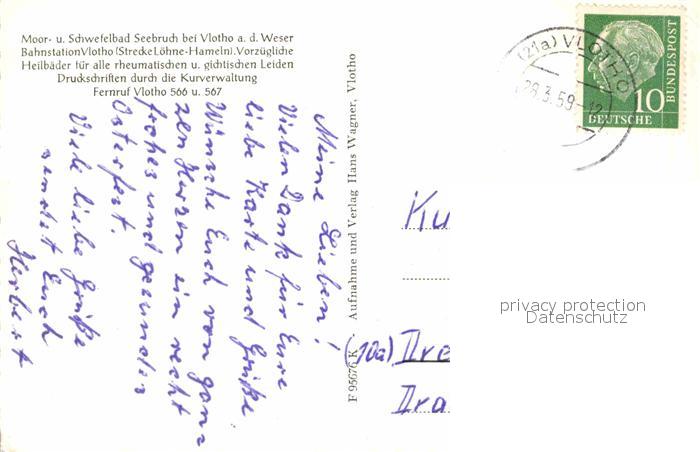 Moor- u. Schwefelbad Seebruch bei Vlotho a. d. Weser
Bahnstation Vlotho (Strecke Löhne-Hameln). Vorzügliche
Heilbäder für alle rheumatischen u. gichtischen Leiden
Druckschriften durch die Kurverwaltung
Fernruf Vlotho 566 u. 567
Meine Lieben!
Vielen Dank für Eure
liebe Karte und Grüße
Wünsche Euch von gan-
zen Herzen ein recht
frohes und gesundes
Osterfest.
Viele liebe Grüße
sendet Euch
Herbert
F 95676 K · Aufnahme und Verlag Hans Wagner, Vlotho
(21a) VLOTHO
28.3.59-12
10
DEUTSCHE
BUNDESPOST
Ku
(10a) Dre
Dra
privacy protection
Datenschutz